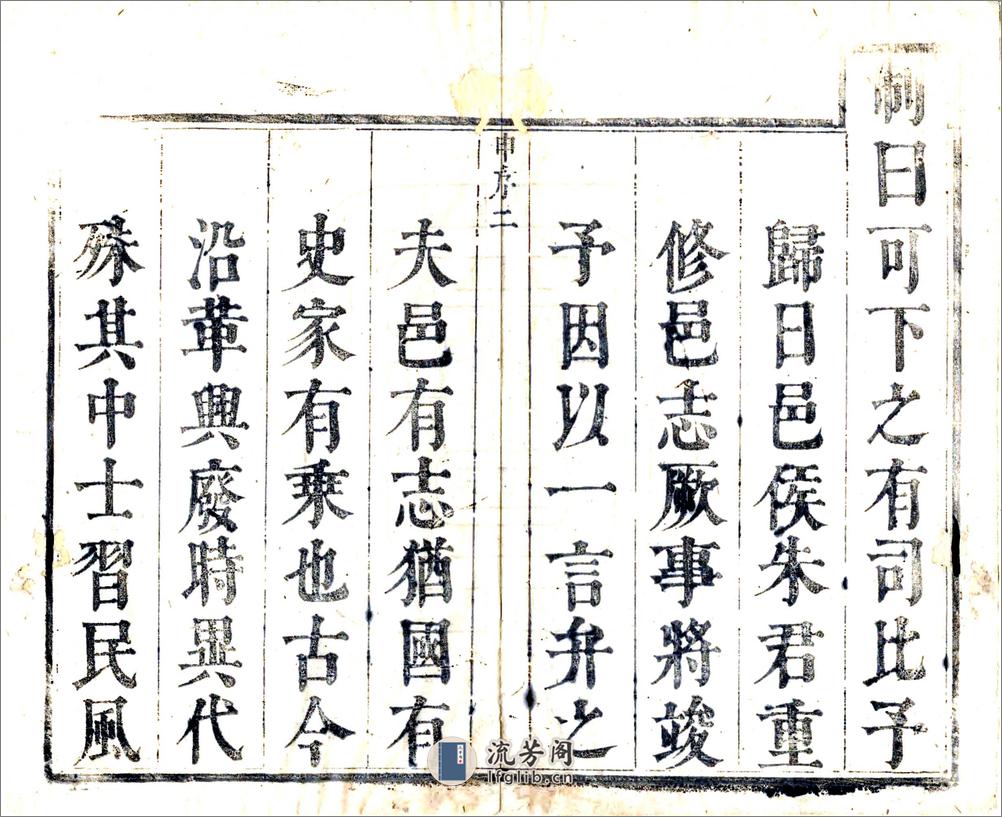 制曰可下之有司比予
歸日邑侯朱君重
修邑志厥事將竣
予因以一言弁之
申序二
夫邑有志猶國有
史家有乘也古今
沿革興廢時異代
殊其中士習民風
流芳阁
lfglib.cn